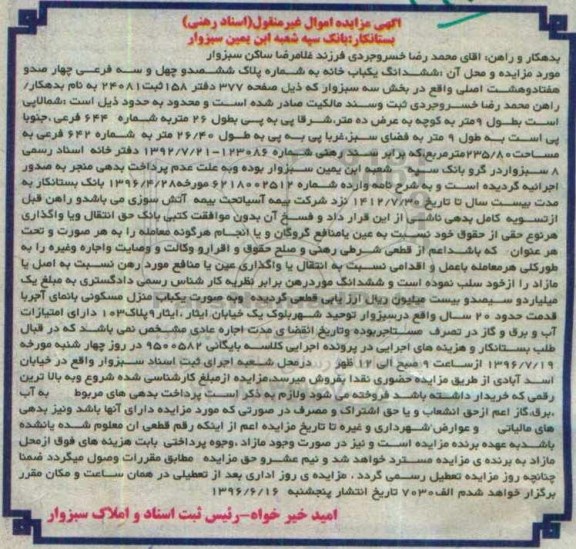 آگهی مزایده اموال غیرمنقول(اسناد رهنی)
بستانکار:بانک سپه شعبه ابن یمین سبزوار
بدهکار و راهن: آقای محمد رضا خسروجردی فرزند غلامرضا ساکن سبزوار
مورد مزایده و محل آن :ششدانگ یکباب خانه به شماره پلاک ششصدو چهل و سه فرعی چهار صدو
هفتادوهشت اصلی واقع در بخش سه سبزوار که ذیل صفحه ۳۷۷ دفتر ۱۵۸ ثبت ۲۴۰۸۱ به نام بدهکار/
راهن محمد رضا خسروجردی ثبت وسند مالکیت صادر شده است و محدود به حدود ذیل است :شمالاپی
است بطول ۹متر به کوچه به عرض ده متر،شرقا پی به پی بطول ۲۶ متربه شماره ۶۴۴ فرعی ،جنوبا
پی است به طول ۹ متر به فضای سبز،غربا پی به پی به طول ۲۶/۴۰ متر به شماره ۶۴۲ فرعی به
مساحت۲۳۵/۸۰مترمربع،که برابر سند رهنی شماره ۱۲۳۰۸۶-۱۳۹۲/۷/۲۱ دفتر خانه اسناد رسمی
۸ سبزواردر گرو بانک سپه شعبه ابن یمین سبزوار بوده وبه علت عدم پرداخت بدهی منجر به صدور
اجرائیه گردیده است و به شرح نامه وارده شماره ۶۲۱۸۰۰۲۵۱۲ مورخه۱۳۹۶/۴/۲۸ بانک بستانکار به
مدت بیست سال تا تاریخ ۱۴۱۲/۷/۳۰ نزد شرکت بیمه آسیاتحت بیمه آتش سوزی می باشدو راهن قبل
ازتسویه کامل بدهی ناشی از این قرار داد و فسخ آن بدون موافقت کتبی بانک حق انتقال ویا واگذاری
هرنوع حقی از حقوق خود نسبت به عین یامنافع گروگان و یا انجام هرگونه معامله را به هر صورت و تحت
هر عنوان که باشداعم از قطعی شرطی رهنی و صلح حقوق و اقرارو وکالت و وصایت واجاره وغیره را به
طورکلی هرمعامله یاعمل و اقدامی نسبت به انتقال یا واگذاری عین یا منافع مورد رهن نسبت به اصل یا
مازاد را ازخود سلب نموده است و ششدانگ موردرهن برابر نظریه کار شناس رسمی دادگستری به مبلغ یک
میلیاردو سیصدو بیست میلیون ریال ارزیابی قطعی گردیده وبه صورت یکباب منزل مسکونی بانمای آجربا
قدمت حدود ۲۰ سال واقع درسبزوار توحید شهربلوک یک خیابان ایثار ،ایثار۹پلاک۱۰۳ دارای امتیازات
آب و برق و گاز در تصرف مستاجربوده وتاریخ انقضا ی مدت اجاره عادی مشخص نمی باشد که در قبال
طلب بستانکار و هزینه های اجرایی در پرونده اجرایی کلاسه بایگانی ۹۵۰۰۵۸۲ در روز چهار شنبه مورخه
۱۳۹۶/۷/۱۹ ازساعت ۹ صبح الی ۱۲ ظهر درمحل شعبه اجرای ثبت اسناد سبزوار واقع در خیابان
اسد آبادی از طریق مزایده حضوری نقدا بفروش میرسد.مزایده ازمبلغ کارشناسی شده شروع وبه بالا ترین
رقمی که خریدار داشته باشد فروخته می شود ولازم به ذکر است پرداخت بدهی های مربوط به آب
،برق،گاز اعم ازحق انشعاب و یا حق اشتراک و مصرف در صورتی که مورد مزایده دارای آنها باشد ونیز بدهی
های مالیاتی و عوارض شهرداری و غیره تا تاریخ مزایده اعم از اینکه رقم قطعی ان معلوم شده یانشده
باشدبه عهده برنده مزایده است و نیز در صورت وجود مازاد ،وجوه پرداختی بابت هزینه های فوق ازمحل
مازاد به برنده ی مزایده مسترد خواهد شد و نیم عشرو حق مزایده مطابق مقررات وصول میگردد ضمنا
چنانچه روز مزایده تعطیل رسمی گردد ، مزایده ی روز اداری بعد از تعطیلی در همان ساعت و مکان مقرر
برگزار خواهد شدم الف۷۰۳۰ تاریخ انتشار پنجشنبه ۱۳۹۶/۶/۱۶
امید خیر خواه-رئیس ثبت اسناد و املاک سبزوار